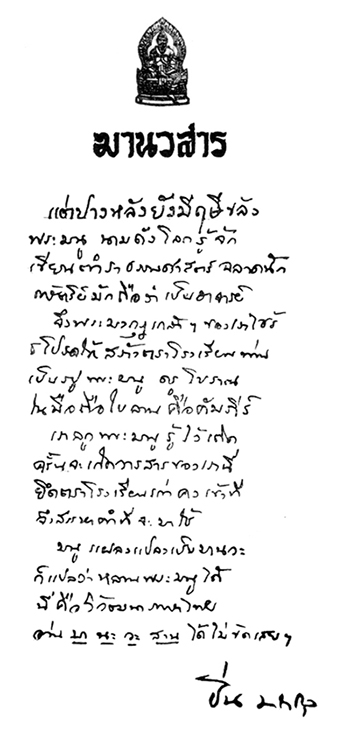 มานวสาร
แต่ปางหลังยังมีฤษีขลัง
พระมนู นามดังโลกรู้จัก
เขียนตำราธรรมศาสตร์ฉลาดนัก
กษัตริย์มักถือว่าเป็นอาจารย์
จึงพระมงกุฎเกล้าฯ ของเราไซร้
ธ โปรดให้สร้างตราโรงเรียนท่าน
เป็นรูปพระมนู ครูโบราณ
ในมือถือใบลานคือคัมภีร์
เราลูกพระมนู รู้ไว้เถิด
ครั้นจะเกิดวารสารของเรานี้
ยึดตราโรงเรียนเก่าคงเข้าที
จึง คำที่จะมาใช้
มนู แผลงแปลงเป็นมานวะ
ก็แปลว่าหลานพระมนูได้
นี่คือวิวัฒนาภาษาไทย
อ่าน มา นะ วะ สาน ได้ไม่ขัดเลยฯ
ปิ่น มาลากุล